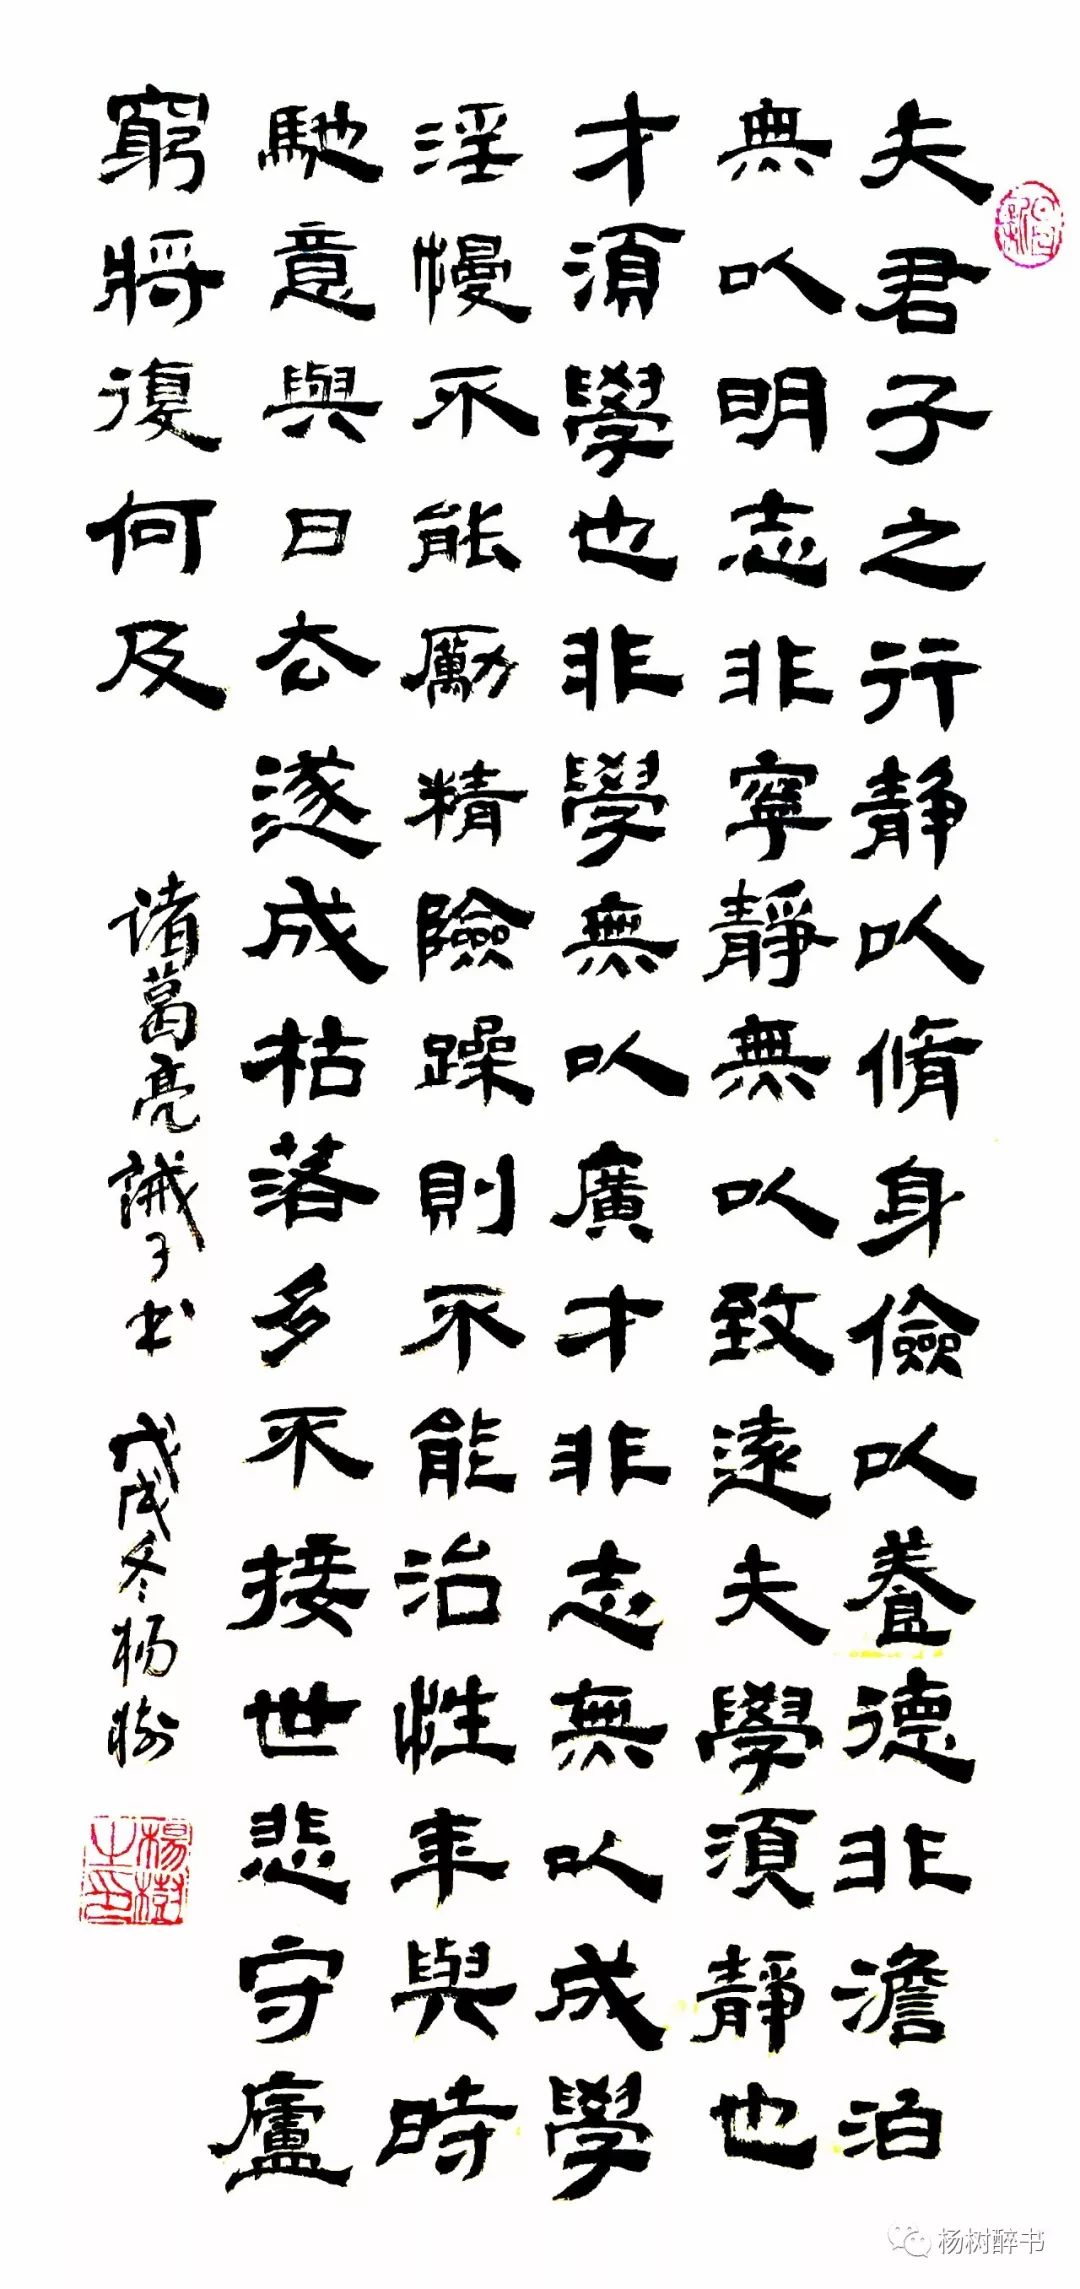 夫君子之行静以脩身儉以養德非澹泊
無以明志非寧靜無以致遠夫學須靜也
才須學也非學無以廣才非志無以成學
淫慢不能勵精險躁則不能治性年與時
馳意與日去遂成枯落多不接世悲守廬
窮將復何及
诸葛亮誡子书 戊戌冬杨树
楊樹之印
杨树醉书